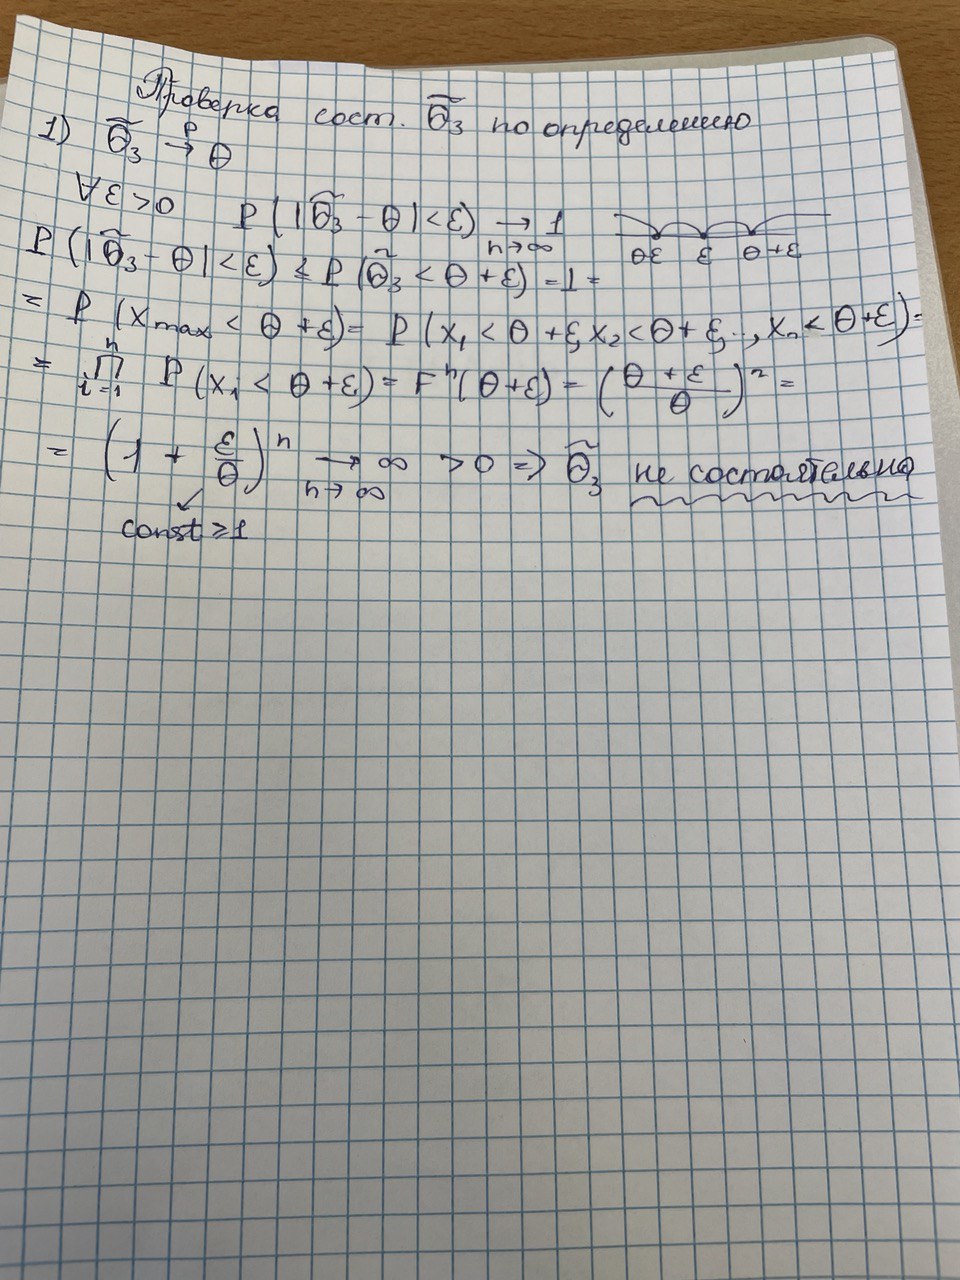 Проверка сост. θ̃₃ по определению
1) θ̃₃ →ᴾ θ
∀ε>0 P(|θ̃₃ - θ|<ε) → 1
n→∞
θε ε θ+ε
P(|θ̃₃ - θ|<ε) ≤ P(θ̃₃ < θ + ε) = 1 =
= P(Xmax < θ + ε) = P(X₁ < θ + ε, X₂ < θ + ε, .., Xₙ < θ + ε) =
= ∏ⁿᵢ₌₁ P(X₁ < θ + ε) = Fⁿ(θ+ε) = ((θ + ε)/θ)ⁿ =
= (1 + ε/θ)ⁿ → ∞ > 0 ⇒ θ̃₃ не состоятельна
n→∞
const ≥ 1